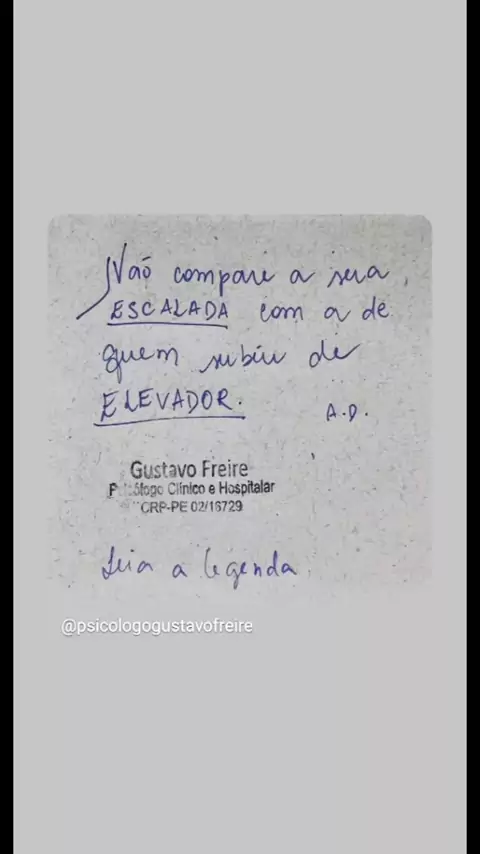 Não compare a sua
ESCALADA com a de
quem subiu de
ELEVADOR.
A.D.
Gustavo Freire
Psicólogo Clínico e Hospitalar
CRP-PE 02/16729
Leia a legenda
@psicologogustavofreire